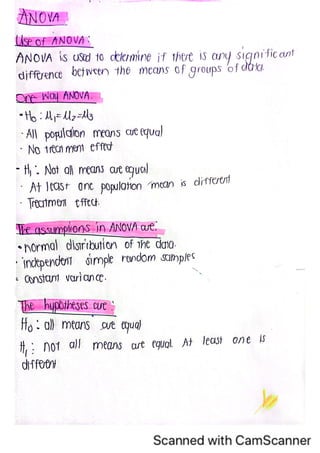 ANOVA
Use of ANOVA:
ANOVA is used to determine if there is any significant
difference between the means of groups of data.
One Way ANOVA:
• H₀ : μ₁ = μ₂ = μ₃
· All population means are equal
· No treatment effect
· H₁ : Not all means are equal
· At least one population mean is different
· Treatment effect.
The assumptions in ANOVA are:
• normal distribution of the data.
· independent simple random samples
• constant variance.
The hypotheses are:
H₀ : all means are equal
H₁ : not all means are equal. At least one is
different
Scanned with CamScanner